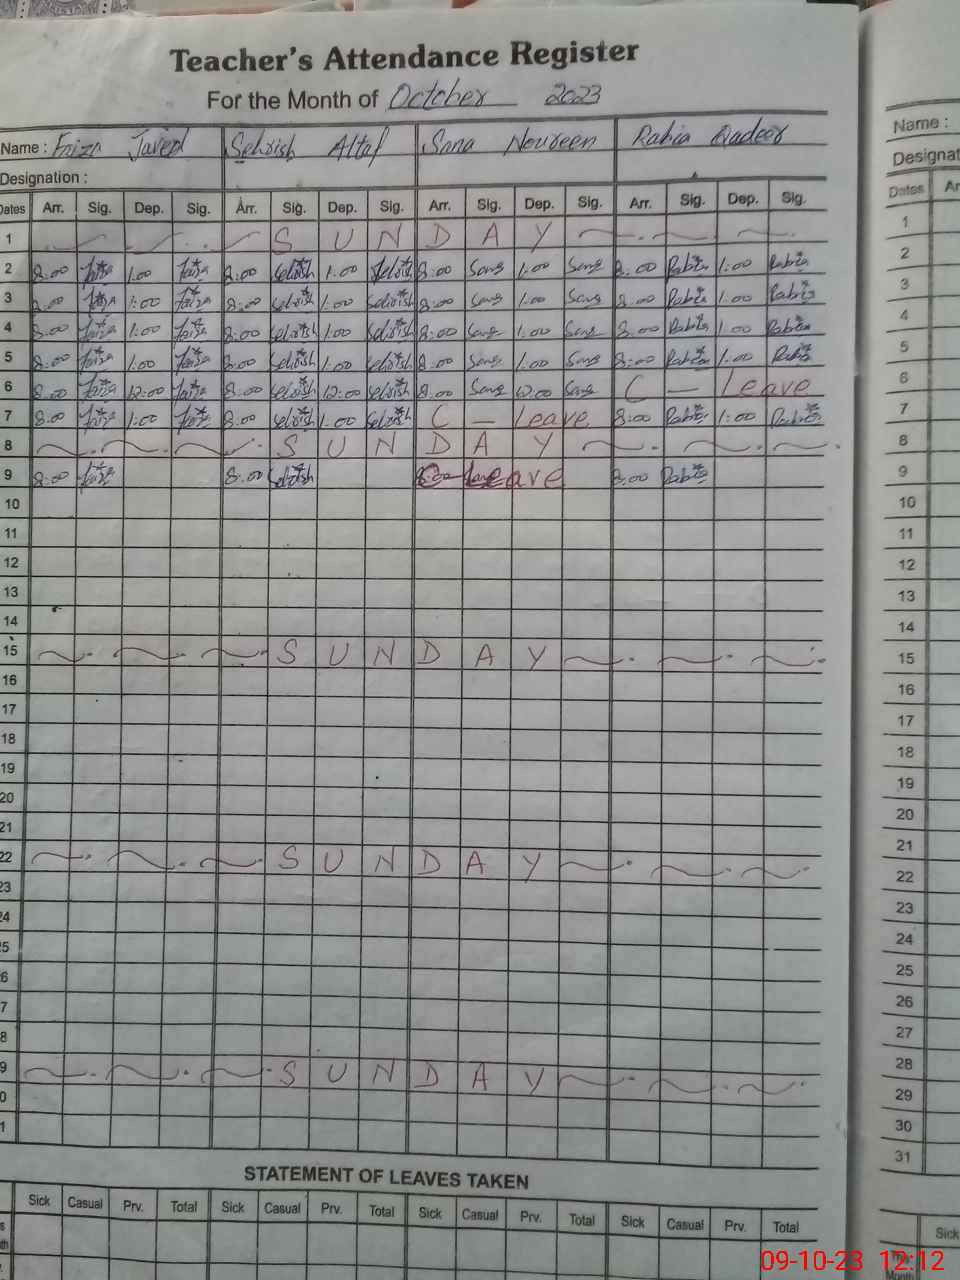 Teacher's Attendance Register
For the Month of October 2023
Name : Faiza Javed Sehrish Altaf Sana Noureen Rabia Qadeer
Designation :
Dates Arr. Sig. Dep. Sig. Arr. Sig. Dep. Sig. Arr. Sig. Dep. Sig. Arr. Sig. Dep. Sig.
1 S U N D A Y
2 8:00 Faiza 1:00 Faiza 8:00 Sehrish 1:00 Sehrish 8:00 Sana 1:00 Sana 8:00 Rabia 1:00 Rabia
3 8:00 Faiza 1:00 Faiza 8:00 Sehrish 1:00 Sehrish 8:00 Sana 1:00 Sana 8:00 Rabia 1:00 Rabia
4 8:00 Faiza 1:00 Faiza 8:00 Sehrish 1:00 Sehrish 8:00 Sana 1:00 Sana 8:00 Rabia 1:00 Rabia
5 8:00 Faiza 1:00 Faiza 8:00 Sehrish 1:00 Sehrish 8:00 Sana 1:00 Sana 8:00 Rabia 1:00 Rabia
6 8:00 Faiza 12:00 Faiza 8:00 Sehrish 12:00 Sehrish 8:00 Sana 12:00 Sana C — Leave
7 8:00 Faiza 1:00 Faiza 8:00 Sehrish 1:00 Sehrish C — Leave 8:00 Rabia 1:00 Rabia
8 S U N D A Y
9 8:00 Faiza 8:00 Sehrish C — Leave 8:00 Rabia
10
11
12
13
14
15 S U N D A Y
16
17
18
19
20
21
22 S U N D A Y
23
24
5
6
7
8
9 S U N D A Y
0
1
STATEMENT OF LEAVES TAKEN
Sick Casual Prv. Total Sick Casual Prv. Total Sick Casual Prv. Total Sick Casual Prv. Total
Name :
Designat
Dates Ar
1
2
3
4
5
6
7
8
9
10
11
12
13
14
15
16
17
18
19
20
21
22
23
24
25
26
27
28
29
30
31
Sick
This
Month
09-10-23 12:12